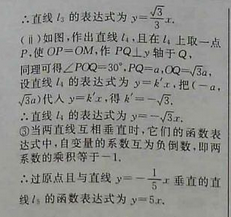 ∴直线 l₃ 的表达式为 y=$\frac{\sqrt{3}}{3}$x.
(ⅱ)如图,作出直线 l₄,且在 l₄ 上取一点
P,使 OP=OM,作 PQ⊥y 轴于 Q,
同理可得∠POQ=30°,PQ=a,OQ=√3a,
设直线 l₄ 的表达式为 y=k′x,把(−a,
√3a)代人 y=k′x,得 k′=−√3.
∴直线 l₄ 的表达式为 y=−√3x.
③当两直线互相垂直时,它们的函数表
达式中,自变量的系数互为负倒数,即两
系数的乘积等于−1.
∴过原点且与直线 y=−$\frac{1}{5}$x 垂直的直
线 l₅ 的函数表达式为 y=5x.